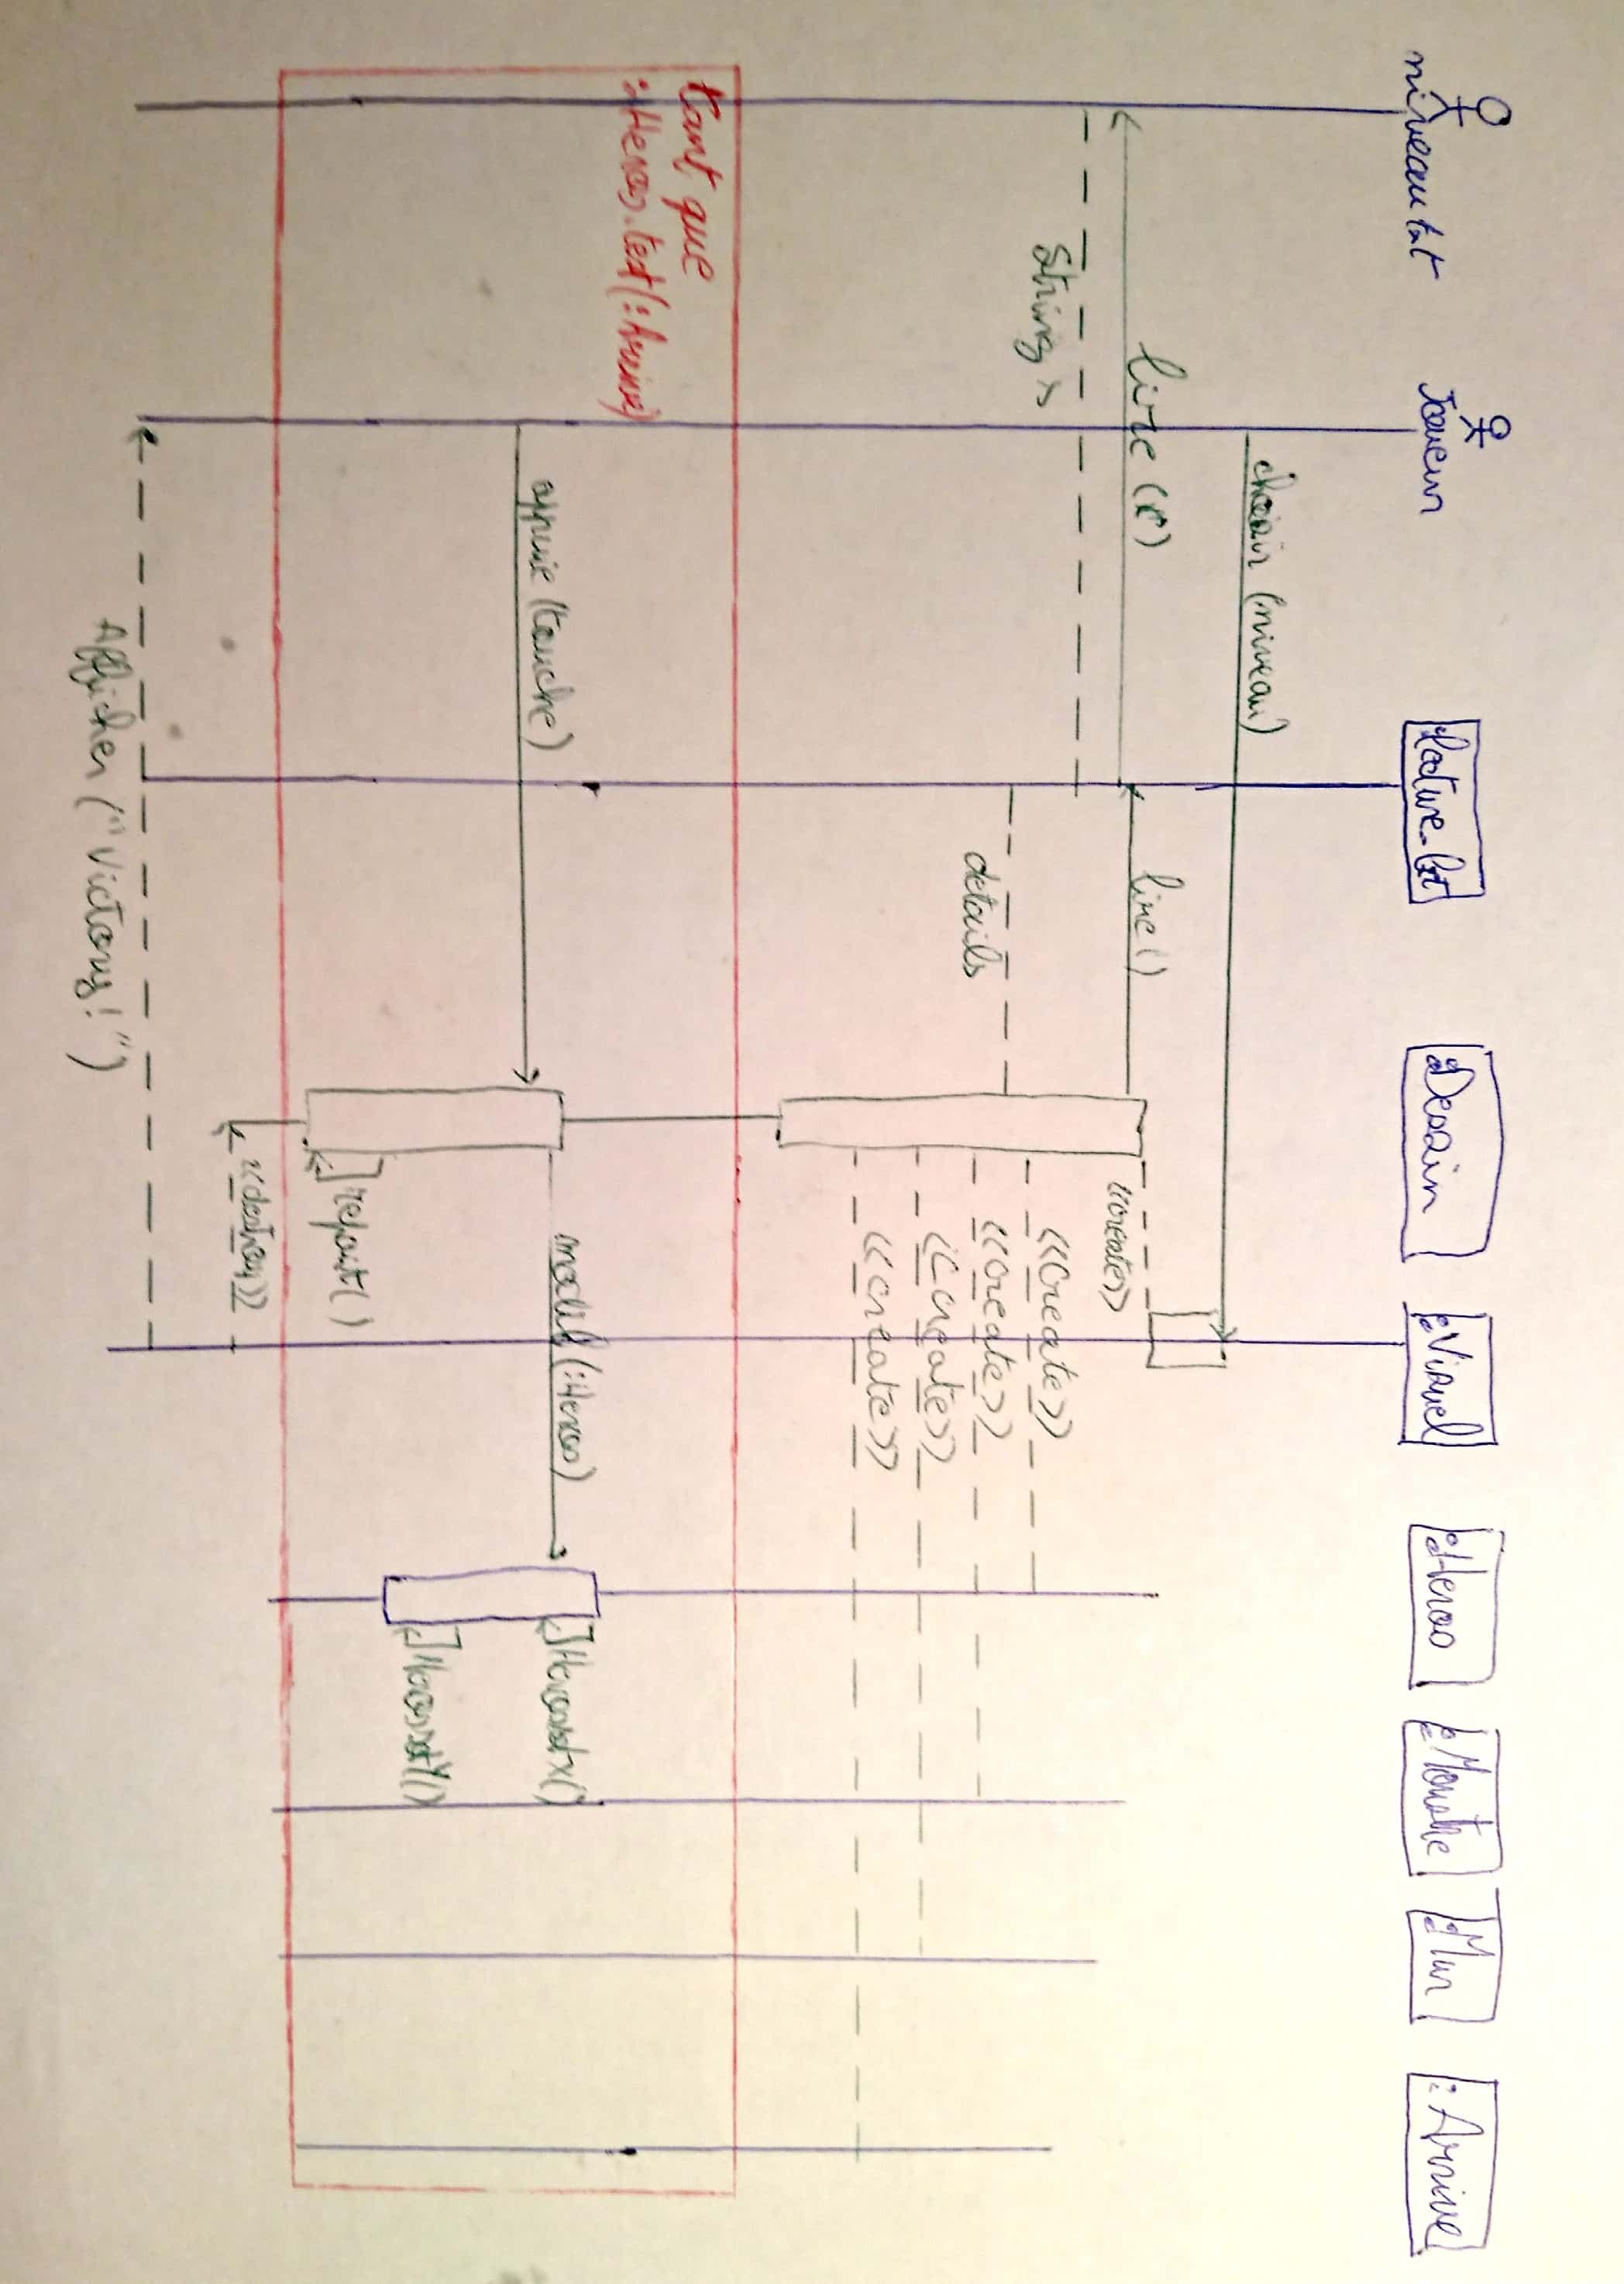 niveau txt
Joueur
:lecture_txt
:Dessin
:Visuel
:Heros
:Monstre
:Mur
:Arrive
choisir (niveau)
lire ()
lire ()
<<create>>
String s
<<Create>>
details
<<create>>
<<create>>
<<create>>
tant que
:Heros.test(:Arrive)
appuie (touche)
modif (:Heros)
Heros.setX()
Heros.setY()
repaint()
<<destroy>>
Afficher ("Victory!")